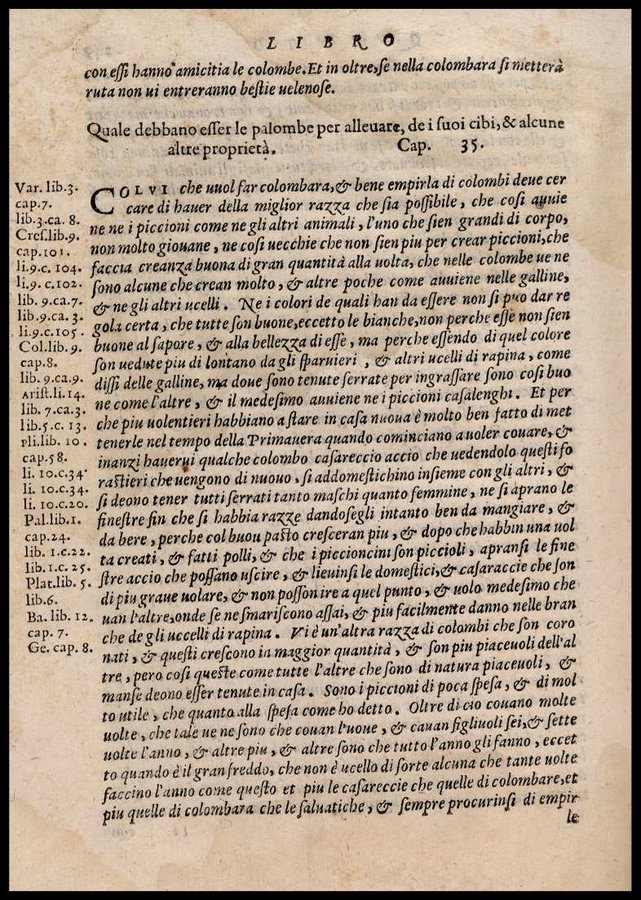 LIBRO
con essi hanno amicitia le colombe. Et in oltre, se nella colombara si metterà
ruta non ui entreranno bestie uelenose.
Quale debbano esser le palombe per alleuare, de i suoi cibi, & alcune
altre proprietà. Cap. 35.
Var. lib. 3.
cap. 7.
lib. 3. ca. 8.
Cres. lib. 9.
cap. 101.
li. 9. c. 104.
li. 9. c. 102.
lib. 9. ca. 7.
lib. 9. ca. 3.
li. 9. c. 105.
Col. lib. 9.
cap. 8.
lib. 9. ca. 9.
Arist. li. 14.
lib. 7. ca. 3.
lib. 5. c. 13.
Pli. lib. 10.
cap. 58.
li. 10. c. 34.
li. 10. c. 34.
li. 10. c. 20.
Pal. lib. 1.
cap. 24.
lib. 1. c. 22.
lib. 1. c. 25.
Plat. lib. 5.
lib. 6.
Ba. lib. 12.
cap. 7.
Ge. cap. 8.
COLVI che uuol far colombara, & bene empirla di colombi deue cer
care di hauer della miglior razza che sia possibile, che cosi auuie
ne ne i piccioni come ne gli altri animali, l'uno che sien grandi di corpo,
non molto giouane, ne cosi uecchie che non sien piu per crear piccioni, che
faccia creanza buona di gran quantità alla uolta, che nelle colombe ue ne
sono alcune che crean molto, & altre poche come auuiene nelle galline,
& ne gli altri ucelli. Ne i colori de quali han da essere non si puo dar re
gola certa, che tutte son buone, eccetto le bianche, non perche esse non sien
buone al sapore, & alla bellezza di esse, ma perche essendo di quel colore
son uedute piu di lontano da gli sparuieri, & altri ucelli di rapina, come
dissi delle galline, ma doue sono tenute serrate per ingrassare sono cosi buo
ne come l'altre, & il medesimo auuiene ne i piccioni casalenghi. Et per
che piu uolentieri habbiano a stare in casa nuoua è molto ben fatto di met
tenerle nel tempo della Primauera quando cominciano a uoler couare, &
inanzi hauerui qualche colombo casareccio accio che uedendolo questi fo
rastieri che uengono di nuouo, si addomestichino insieme con gli altri, &
si deono tener tutti serrati tanto maschi quanto femmine, ne si aprano le
finestre fin che si habbia razze dandosegli intanto ben da mangiare, &
da bere, perche col buon pasto cresceran piu, & dopo che habbin una uol
ta creati, & fatti polli, & che i piccioncini son piccioli, apransi le fine
stre accio che possano uscire, & lieuinsi le domestici, & casaraccie che son
di piu graue uolare, & non posson ire a quel punto, & uolo medesimo che
uan l'altre, onde se ne smariscono assai, & piu facilmente danno nelle bran
che de gli uccelli di rapina. Vi è un'altra razza di colombi che son coro
nati, & questi crescono in maggior quantità, & son piu piaceuoli dell'al
tre, pero cosi queste come tutte l'altre che sono di natura piaceuoli, &
manse deono esser tenute in casa. Sono i piccioni di poca spesa, & di mol
to utile, che quanto alla spesa come ho detto. Oltre di cio couano molte
uolte, che tale ue ne sono che couan l'uoue, & cauan figliuoli sei, & sette
uolte l'anno, & altre piu, & altre sono che tutto l'anno gli fanno, eccet
to quando è il gran freddo, che non è ucello di sorte alcuna che tante uolte
faccino l'anno come questo et piu le casareccie che quelle di colombare, et
piu quelle di colombara che le saluatiche, & sempre procurinsi di empir
le